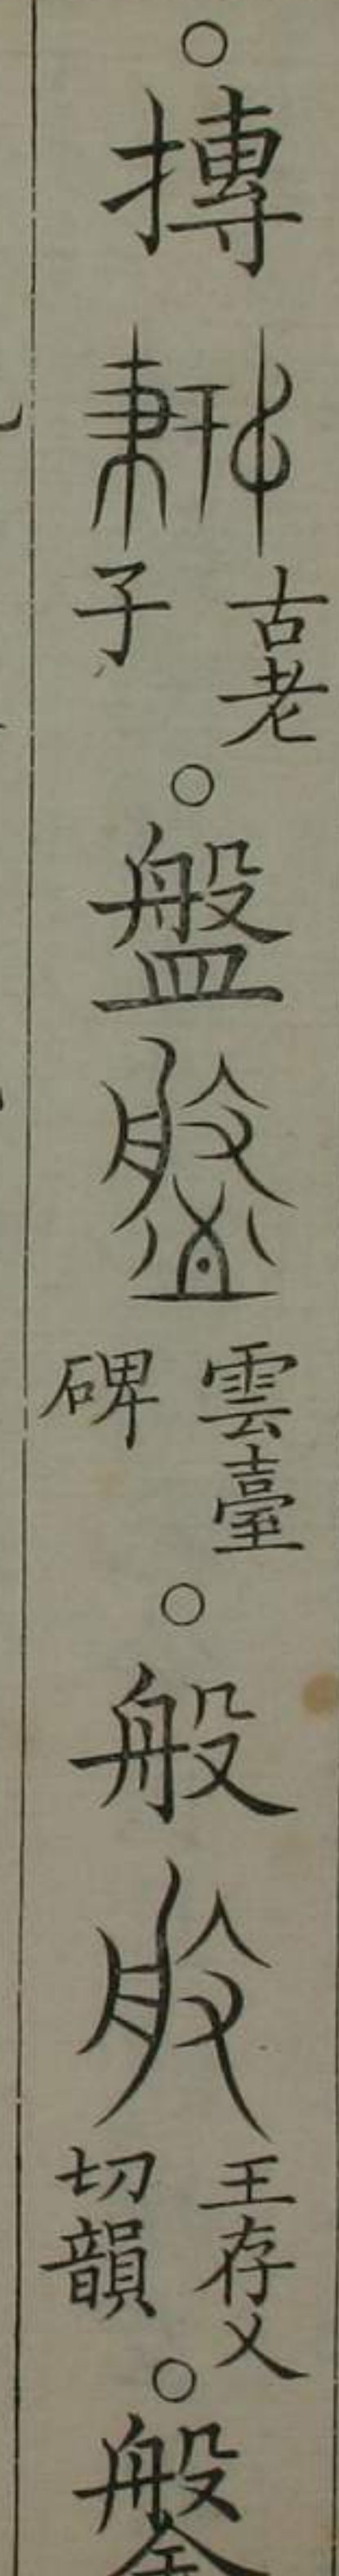 ○摶
古老子
○盤
雲臺碑
○般
王存乂切韻
○